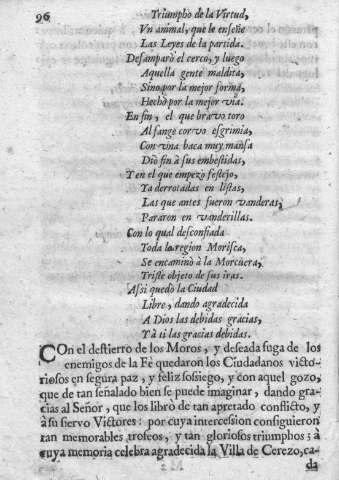 96
Triumpho de la Virtud,
Vn animal, que le enseñe
Las Leyes de la partida.
Desamparò el cerco, y luego
Aquella gente maldita,
Sino por la mejor forma,
Hechò por la mejor via.
En fin, el que bravo toro
Alfange corvo esgrimia,
Con vna baca muy mansa
Diò fin à sus embestidas,
Y en el que empezò festejo,
Ya derrotadas en listas,
Las que antes fueron vanderas,
Pararon en vanderillas.
Con lo qual desconfiada
Toda la region Morisca,
Se encaminò à la Morcuera,
Triste objeto de sus iras.
Assi quedò la Ciudad
Libre, dando agradecida
A Dios las debidas gracias,
Y à ti las gracias debidas.
COn el destierro de los Moros, y deseada fuga de los
enemigos de la Fè quedaron los Ciudadanos victo-
riosos en segura paz, y feliz sossiego, y con aquel gozo,
que de tan señalado bien se puede imaginar, dando gra-
cias al Señor, que los librò de tan apretado conflicto, y
à su siervo Victores: por cuya intercession consiguieron
tan memorables trofeos, y tan gloriosos triumphos; à
cuya memoria celebra agradecida la Villa de Cerezo, ca-
da